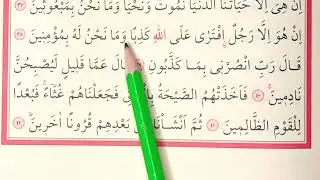 إِنْ هِيَ إِلَّا حَيَاتُنَا الدُّنْيَا نَمُوتُ وَنَحْيَا وَمَا نَحْنُ بِمَبْعُوثِينَ ﴿٣٧﴾
إِنْ هُوَ إِلَّا رَجُلٌ افْتَرَى عَلَى اللهِ كَذِبًا وَمَا نَحْنُ لَهُ بِمُؤْمِنِينَ ﴿٣٨﴾
قَالَ رَبِّ انْصُرْنِي بِمَا كَذَّبُونِ ﴿٣٩﴾ قَالَ عَمَّا قَلِيلٍ لَيُصْبِحُنَّ
نَادِمِينَ ﴿٤٠﴾ فَأَخَذَتْهُمُ الصَّيْحَةُ بِالْحَقِّ فَجَعَلْنَاهُمْ غُثَاءً فَبُعْدًا
لِلْقَوْمِ الظَّالِمِينَ ﴿٤١﴾ ثُمَّ أَنْشَأْنَا مِنْ بَعْدِهِمْ قُرُونًا آخَرِينَ ﴿٤٢﴾